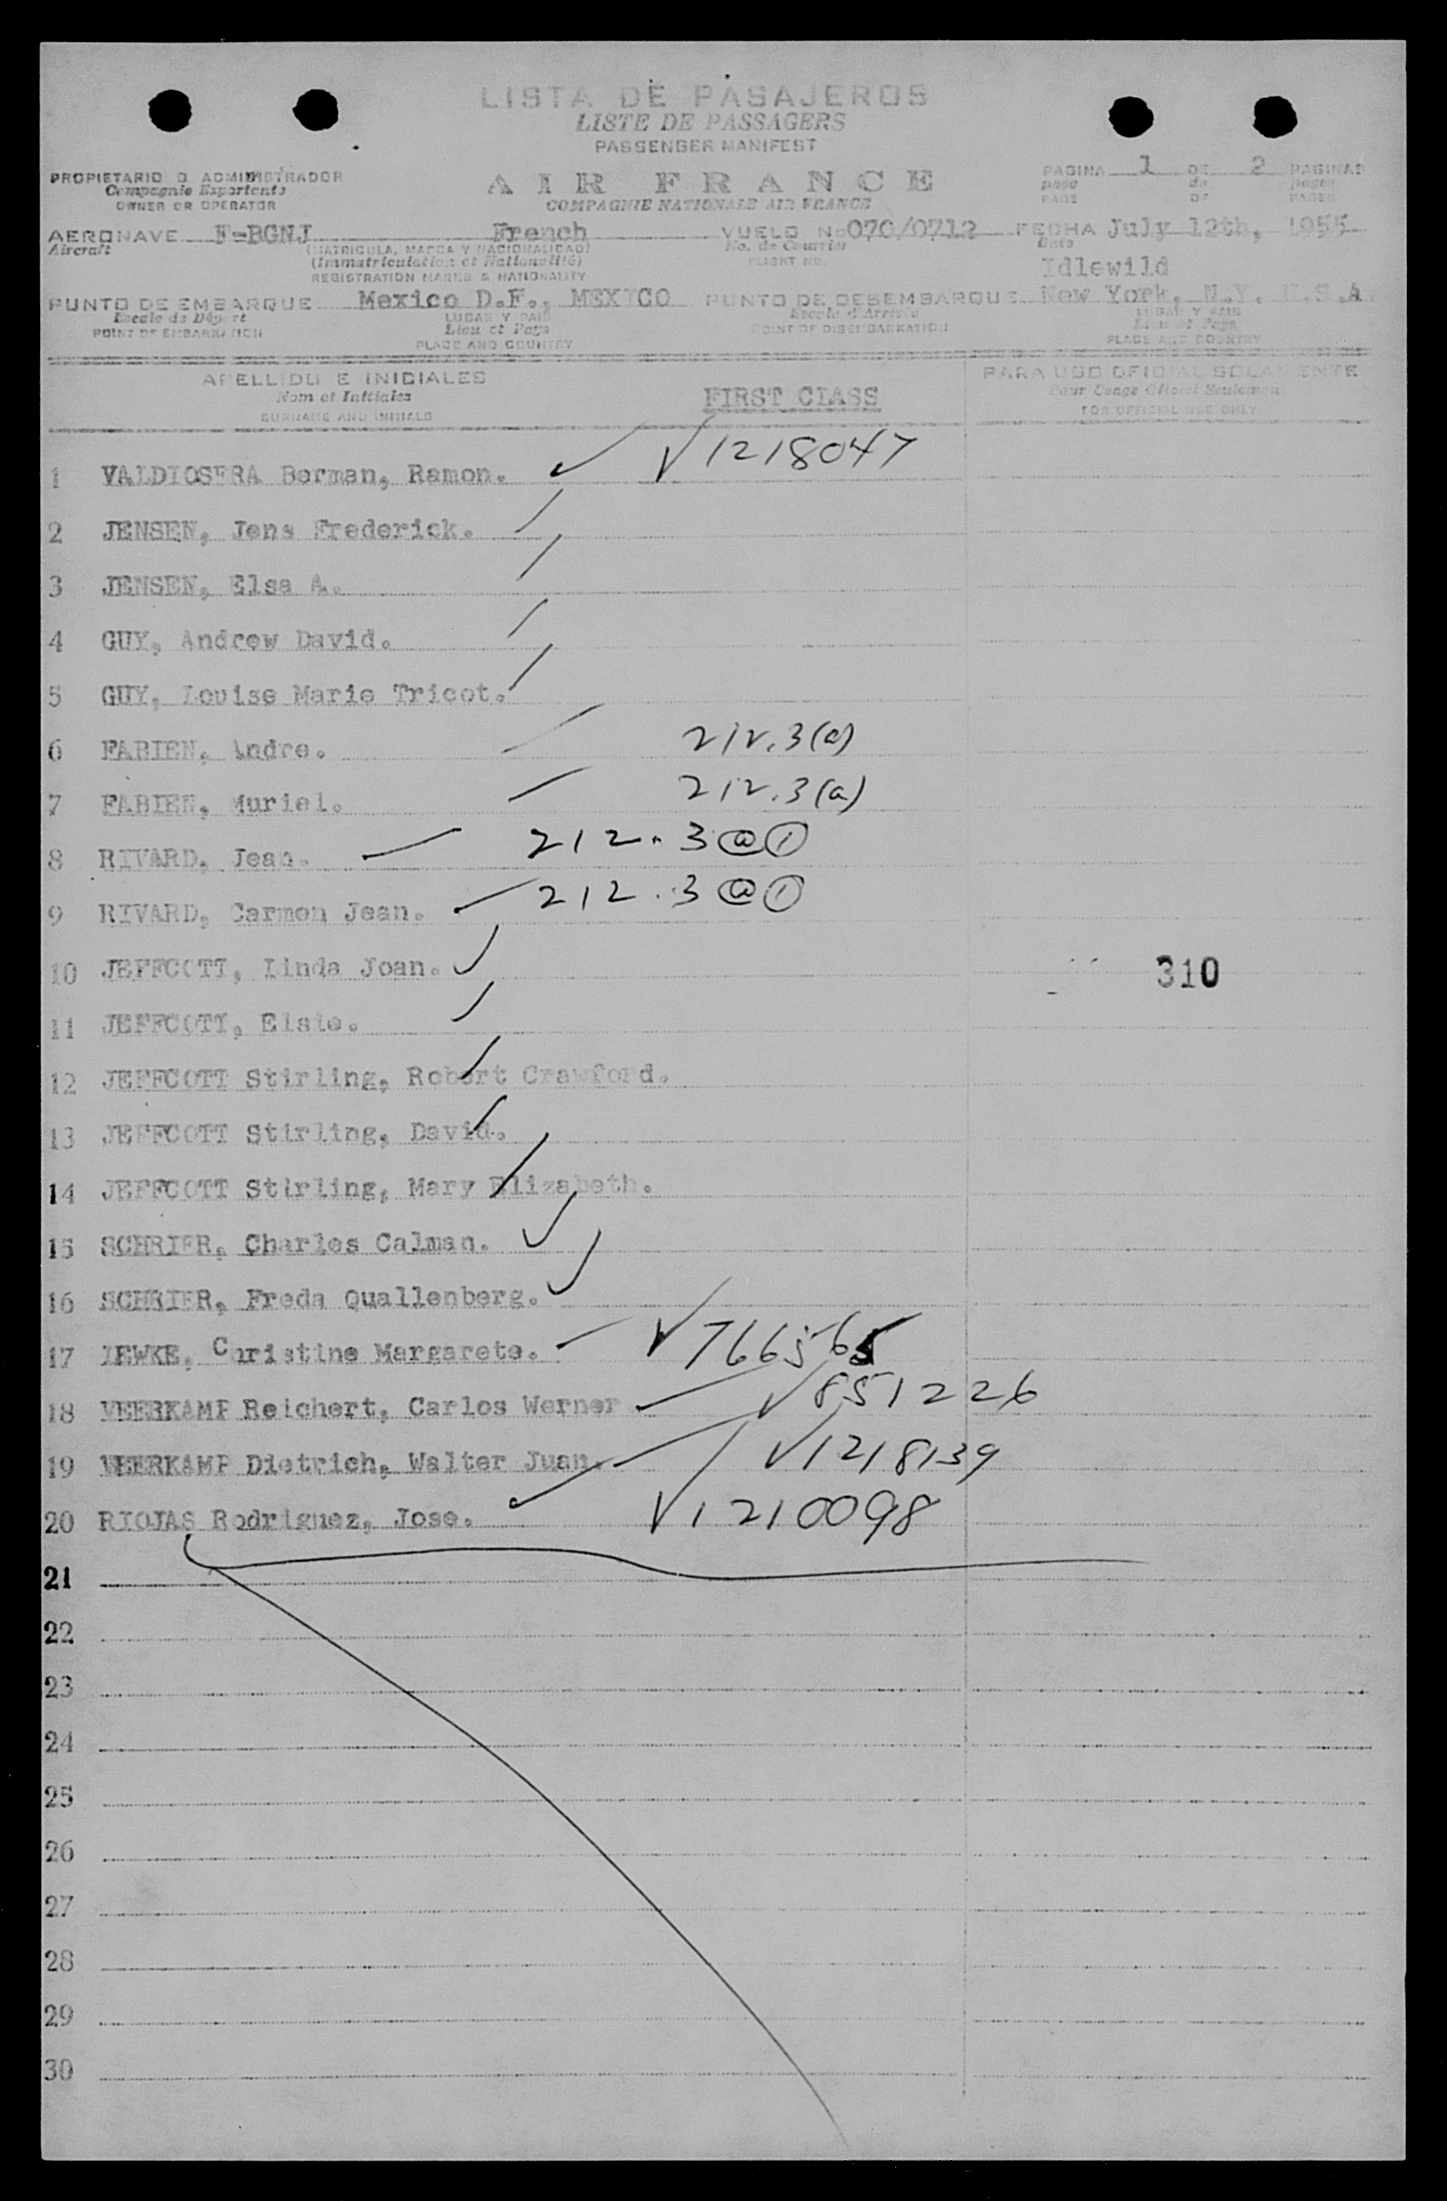 LISTA DE PASAJEROS
LISTE DE PASSAGERS
PASSENGER MANIFEST
PROPIETARIO O ADMINISTRADOR
Compagnie Exportente
OWNER OR OPERATOR
AIR FRANCE
COMPAGNIE NATIONALE AIR FRANCE
PAGINA 1 DE 2 PAGINAS
page de pages
PAGE OF PAGES
AERONAVE F-BGNJ French VUELO No 070/0712 FECHA July 12th, 1955
Aircraft (MATRICULA, MARCA Y NACIONALIDAD) No. de Courrier Date
(Immatriculation et Nationalité) FLIGHT NO.
REGISTRATION MARKS & NATIONALITY
Idlewild
PUNTO DE EMBARQUE Mexico D.F., MEXICO PUNTO DE DESEMBARQUE New York, N.Y. U.S.A
Escale de Départ LUGAR Y PAIS Escale d'Arrivée LUGAR Y PAIS
POINT OF EMBARKATION Lieu et Pays POINT OF DISEMBARKATION Lieu et Pays
PLACE AND COUNTRY PLACE AND COUNTRY
APELLIDO E INICIALES PARA USO OFICIAL SOLAMENTE
Nom et Initiales FIRST CLASS Pour Usage Officiel Seulement
SURNAME AND INITIALS FOR OFFICIAL USE ONLY
1 VALDIOSERA Berman, Ramon. 1218047
2 JENSEN, Jens Frederick.
3 JENSEN, Elsa A.
4 GUY, Andrew David.
5 GUY, Louise Marie Tricot.
6 FABIEN, Andre. 212.3(a)
7 FABIEN, Muriel. 212.3(a)
8 RIVARD, Jean. 212.3 (a) (1)
9 RIVARD, Carmen Jean. 212.3 (a) (1)
10 JEFFCOTT, Linda Joan. 310
11 JEFFCOTT, Elsie.
12 JEFFCOTT Stirling, Robert Crawford.
13 JEFFCOTT Stirling, David.
14 JEFFCOTT Stirling, Mary Elizabeth.
15 SCHRIER, Charles Calman.
16 SCHRIER, Freda Quallenberg.
17 Christine Margarete. 766565
18 VEERKAMP Reichert, Carlos Werner 851226
19 VEERKAMP Dietrich, Walter Juan. 1218139
20 RIOJAS Rodriguez, Jose. 1210098
21
22
23
24
25
26
27
28
29
30